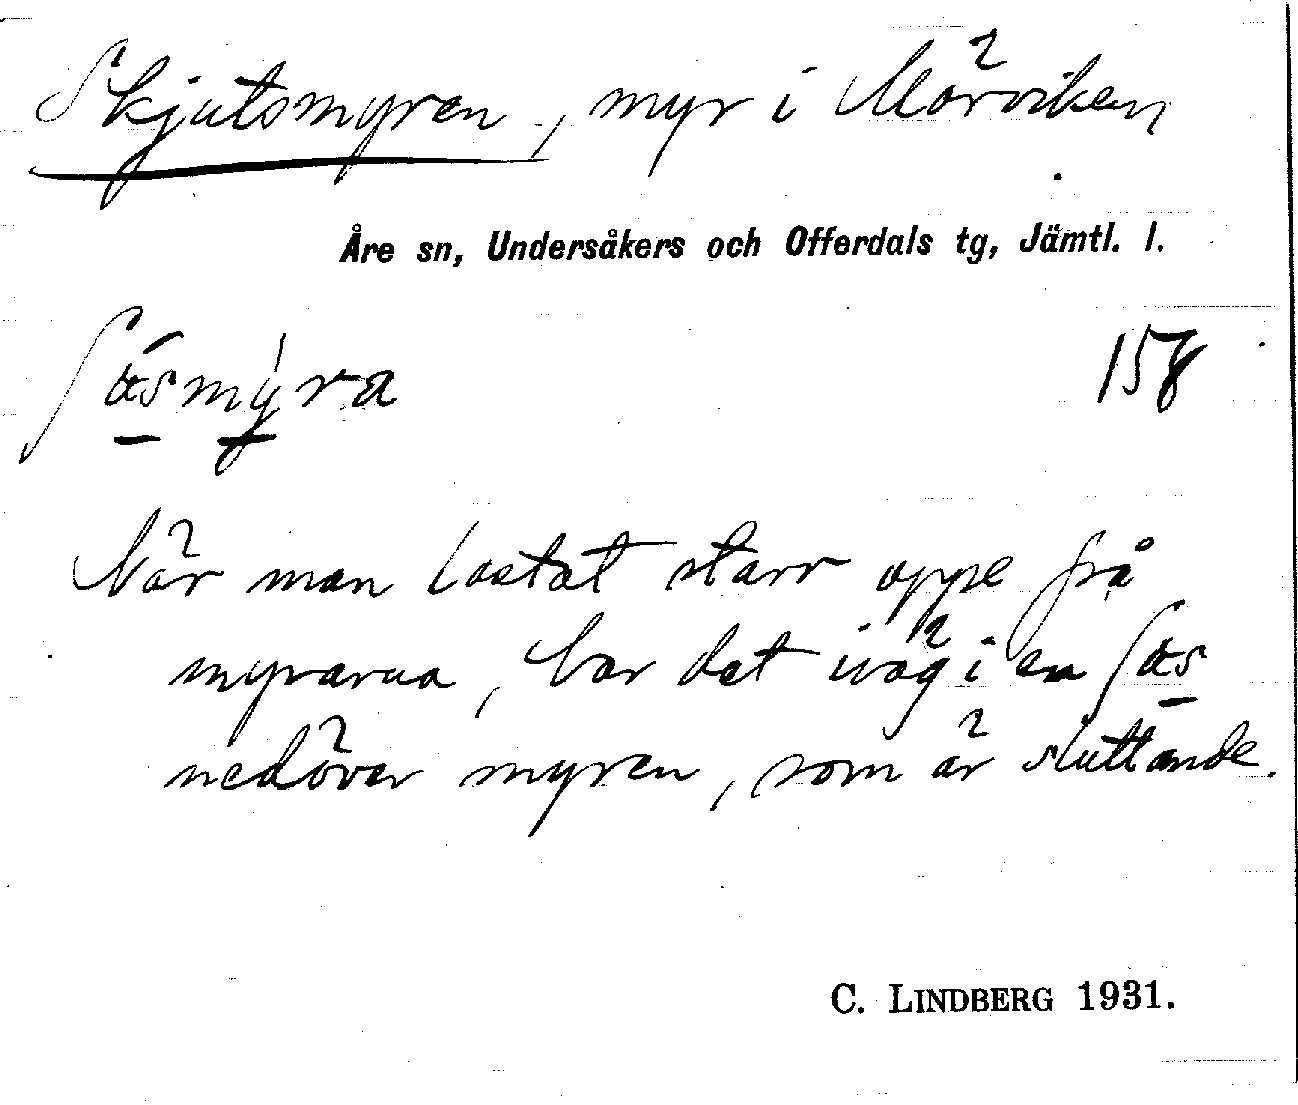 Skjutsmyren, myr i Mörviken
Åre sn, Undersåkers och Offerdals tg, Jämtl. l.
ʃɷ́smy̍ra 158
När man lastat starr oppe från
myrarna, bar det iväg i en ʃɷs
nedöver myren, som är sluttande.
C. LINDBERG 1931.